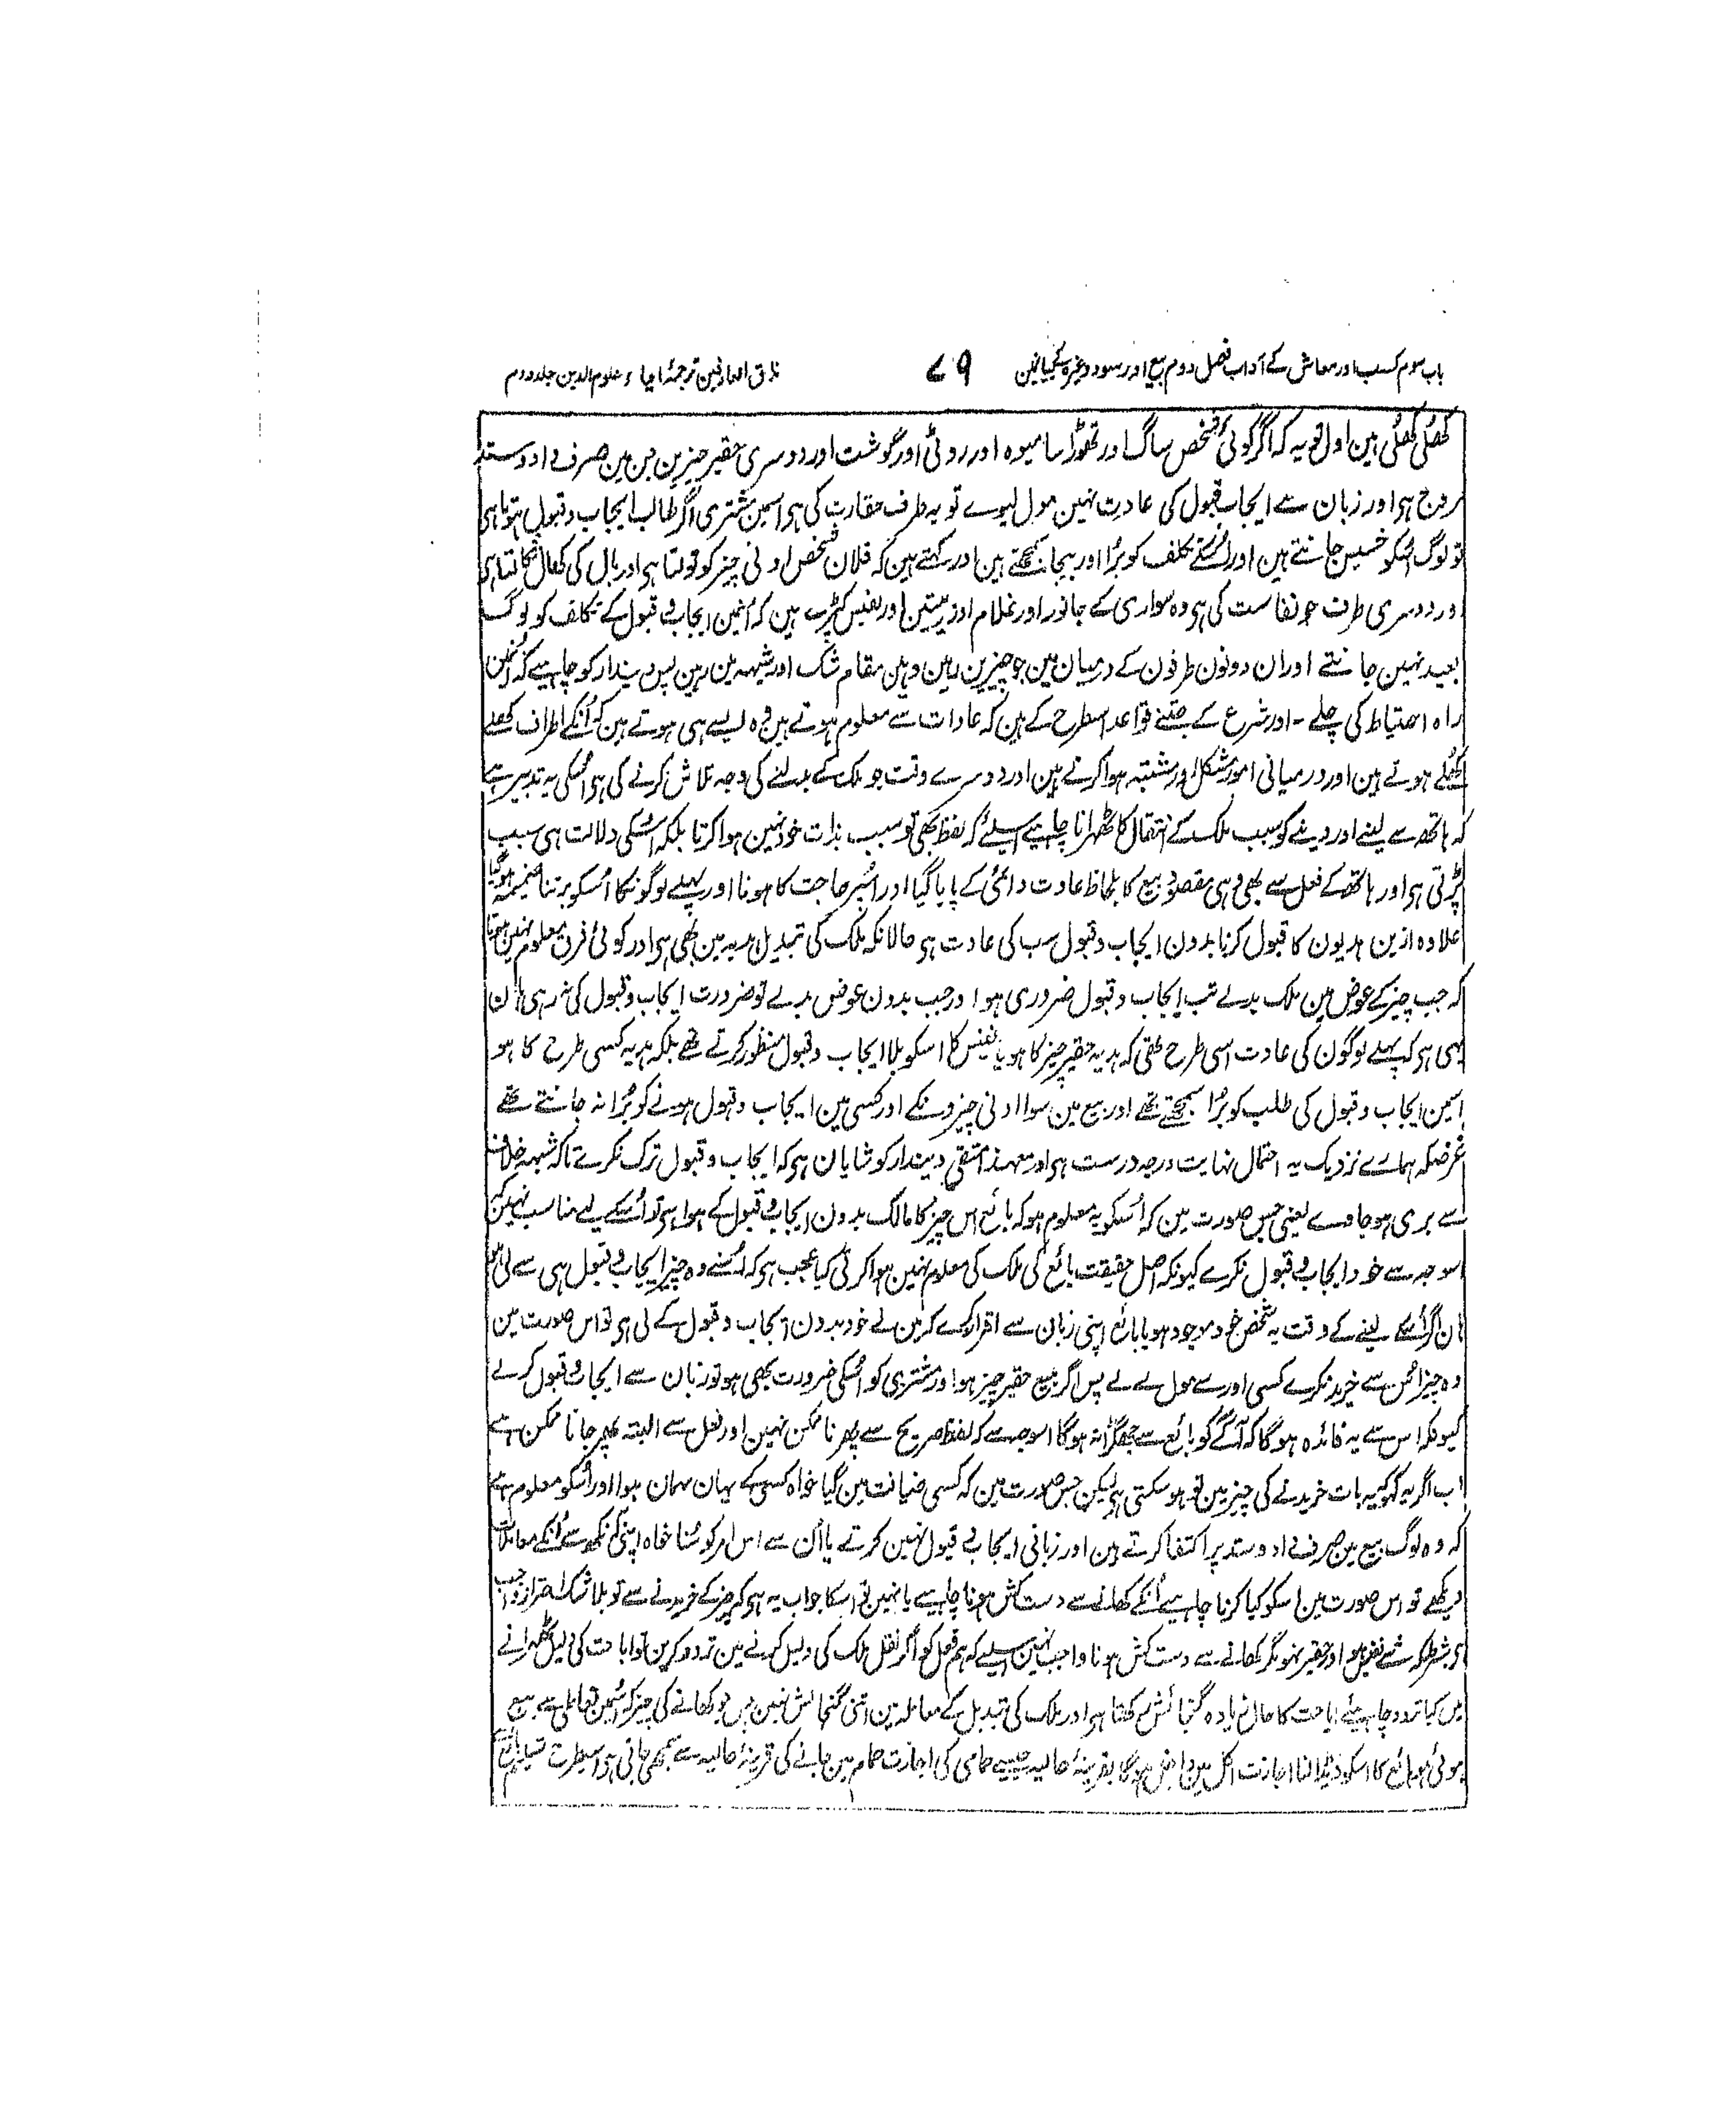 باب سوم کسب اور معاش کے آداب فصل دوم بیع اور سود وغیرہ کے بیان مین
۷۹
مذاق العارفین ترجمۂ احیاء علوم الدین جلد دوم
کھلی کھلی ہین اول تو یہ کہ اگر کوئی شخص ساگ اور تھوڑا سا میوہ اور روٹی اور گوشت اور دوسری حقیر چیزین جن مین صرف داد و ستد
مروج ہی اور زبان سے ایجاب قبول کی عادت نہین مول لیوے تو یہ طرف حقارت کی ہی اسمین مشتری اگر طالب ایجاب و قبول ہوتا ہی
تو لوگ اُسکو خسیس جانتے ہین اور اُسکے تکلف کو بُرا اور بیجا سمجھتے ہین اور کہتے ہین کہ فلان شخص ادنی چیز کو تولتا ہی اور بال کی کھال نکالتا ہی
اور دوسری طرف جو نفاست کی ہی وہ سواری کے جانور اور غلام اور زمینین اور نفیس کپڑے ہین کہ اُنمین ایجاب و قبول کے تکلف کو لوگ
بعید نہین جانتے اور ان دونون طرفون کے درمیان مین جو چیزین ہین وہی مقام شک اور شبہہ مین رہین پس دیندار کو چاہیے کہ اُنمین
راہ احتیاط کی چلے۔ اور شرع کے جتنے قواعد اسطرح کے ہین کہ عادات سے معلوم ہوتے ہین وہ ایسے ہی ہوتے ہین کہ اُنکے اطراف کھلے
کھلے ہوتے ہین اور درمیانی امور مشکل اور مشتبہ ہوا کرتے ہین اور دوسرے وقت جو ملک کے بدلنے کی وجہ تلاش کرنے کی ہی اُسکی یہ تدبیر ہے
کہ ہاتھ سے لینے اور دینے کو سبب ملک کے انتقال کا ٹھہرانا چاہیے اسلیے کہ لفظ بھی تو سبب بذات خود نہین ہوا کرتا بلکہ اسکی دلالت ہی سبب
پڑتی ہی اور ہاتھ کے فعل سے بھی وہی مقصود بیع کا بلحاظ عادت دائمی کے پایا گیا اور اُسپر حاجت کا ہونا اور پہلے لوگونکا اُسکو برتنا ضمیمہ ہوگیا
علاوہ ازین ہدیون کا قبول کرنا بدون ایجاب و قبول سب کی عادت ہی حالانکہ ملک کی تبدیل ہدیہ مین بھی ہی اور کوئی فرق معلوم نہین ہوتا
کہ جب چیز کے عوض مین ملک بدلے تب ایجاب و قبول ضروری ہو اور جب بدون عوض بدلے تو ضرورت ایجاب و قبول کی نہ رہی ہان
یہی ہی کہ پہلے لوگون کی عادت اسی طرح تھی کہ ہدیہ حقیر چیز کا ہو یا نفیس کا اسکو بلا ایجاب و قبول منظور کرتے تھے بلکہ ہدیہ کسی طرح کا ہو
اسمین ایجاب و قبول کی طلب کو بُرا سمجھتے تھے اور بیع مین سوا ادنی چیزونکے اور کسی مین ایجاب و قبول ہونے کو بُرا نہ جانتے تھے
غرضکہ ہمارے نزدیک یہ احتمال نہایت درجہ درست ہی اور معہذا متقی دیندار کو شایان ہی کہ ایجاب و قبول ترک نکرے تاکہ شبہہ خلاف
سے بری ہو جاوے یعنی جس صورت مین کہ اُسکو یہ معلوم ہو کہ بائع اس چیز کا مالک بدون ایجاب و قبول کے ہوا ہی تو اُسکے لیے مناسب نہین کہ
اسوجہ سے خود ایجاب و قبول نکرے کیونکہ اصل حقیقت بائع کی ملک کی معلوم نہین ہوا کرتی کیا عجب ہی کہ اُسنے وہ چیز ایجاب و قبول ہی سے لی ہو
ہان اگر اُسکے لینے کے وقت یہ شخص خود موجود ہو یا بائع اپنی زبان سے اقرار کرے کہ مین نے خود بدون ایجاب و قبول کے لی ہی تو اس صورت مین
وہ چیز اُس سے خرید نکرے کسی اور سے مول لے لے پس اگر مبیع حقیر چیز ہو اور مشتری کو اُسکی ضرورت بھی ہو تو زبان سے ایجاب و قبول کرلے
کیونکہ اس سے یہ فائدہ ہوگا کہ آگے کو بائع سے جھگڑا نہ ہوگا اسوجہ سے کہ لفظ صریح سے پھرنا ممکن نہین اور فعل سے البتہ پھر جانا ممکن ہے
اب اگر یہ کہو کہ یہ بات خریدنے کی چیز مین تو ہو سکتی ہی لیکن جس صورت مین کہ کسی ضیافت مین گیا خواہ کسی کے یہان مہمان ہوا اور اُسکو معلوم ہے
کہ وہ لوگ بیع مین صرف داد و ستد پر اکتفا کرتے ہین اور زبانی ایجاب و قبول نہین کرتے یا اُن سے اس امر کو سُنا خواہ اپنی آنکھ سے اُنکے معاملات
دیکھے تو اس صورت مین اسکو کیا کرنا چاہیے اُنکے کھانے سے دست کش ہونا چاہیے یا نہین تو اسکا جواب یہ ہی کہ چیز کے خریدنے سے تو بلا شک احتراز واجب
ہی بشرطیکہ شے نفیس ہو اور حقیر نہو مگر کھانے سے دست کش ہونا واجب نہین اسلیے کہ ہم فعل کو اگر نقل ملک کی دلیل کرنے مین تردد کرین تو اباحت کی دلیل ٹھہرانے
مین کیا تردد چاہیے اباحت کا حال زیادہ گنجائش رکھتا ہی اور ملک کی تبدیل کے معاملہ مین اتنی گنجائش نہین پس جو کھانے کی چیز کہ اُسمین تعاطی سے بیع
ہوئی ہو بائع کا اسکو دیڈالنا اجازت اکل مین داخل ہوگا بقرینۂ حالیہ جیسے حمامی کی اجازت حمام مین جانے کی قرینۂ حالیہ سے سمجھی جاتی ہی اسیطرح تسلیم بائع